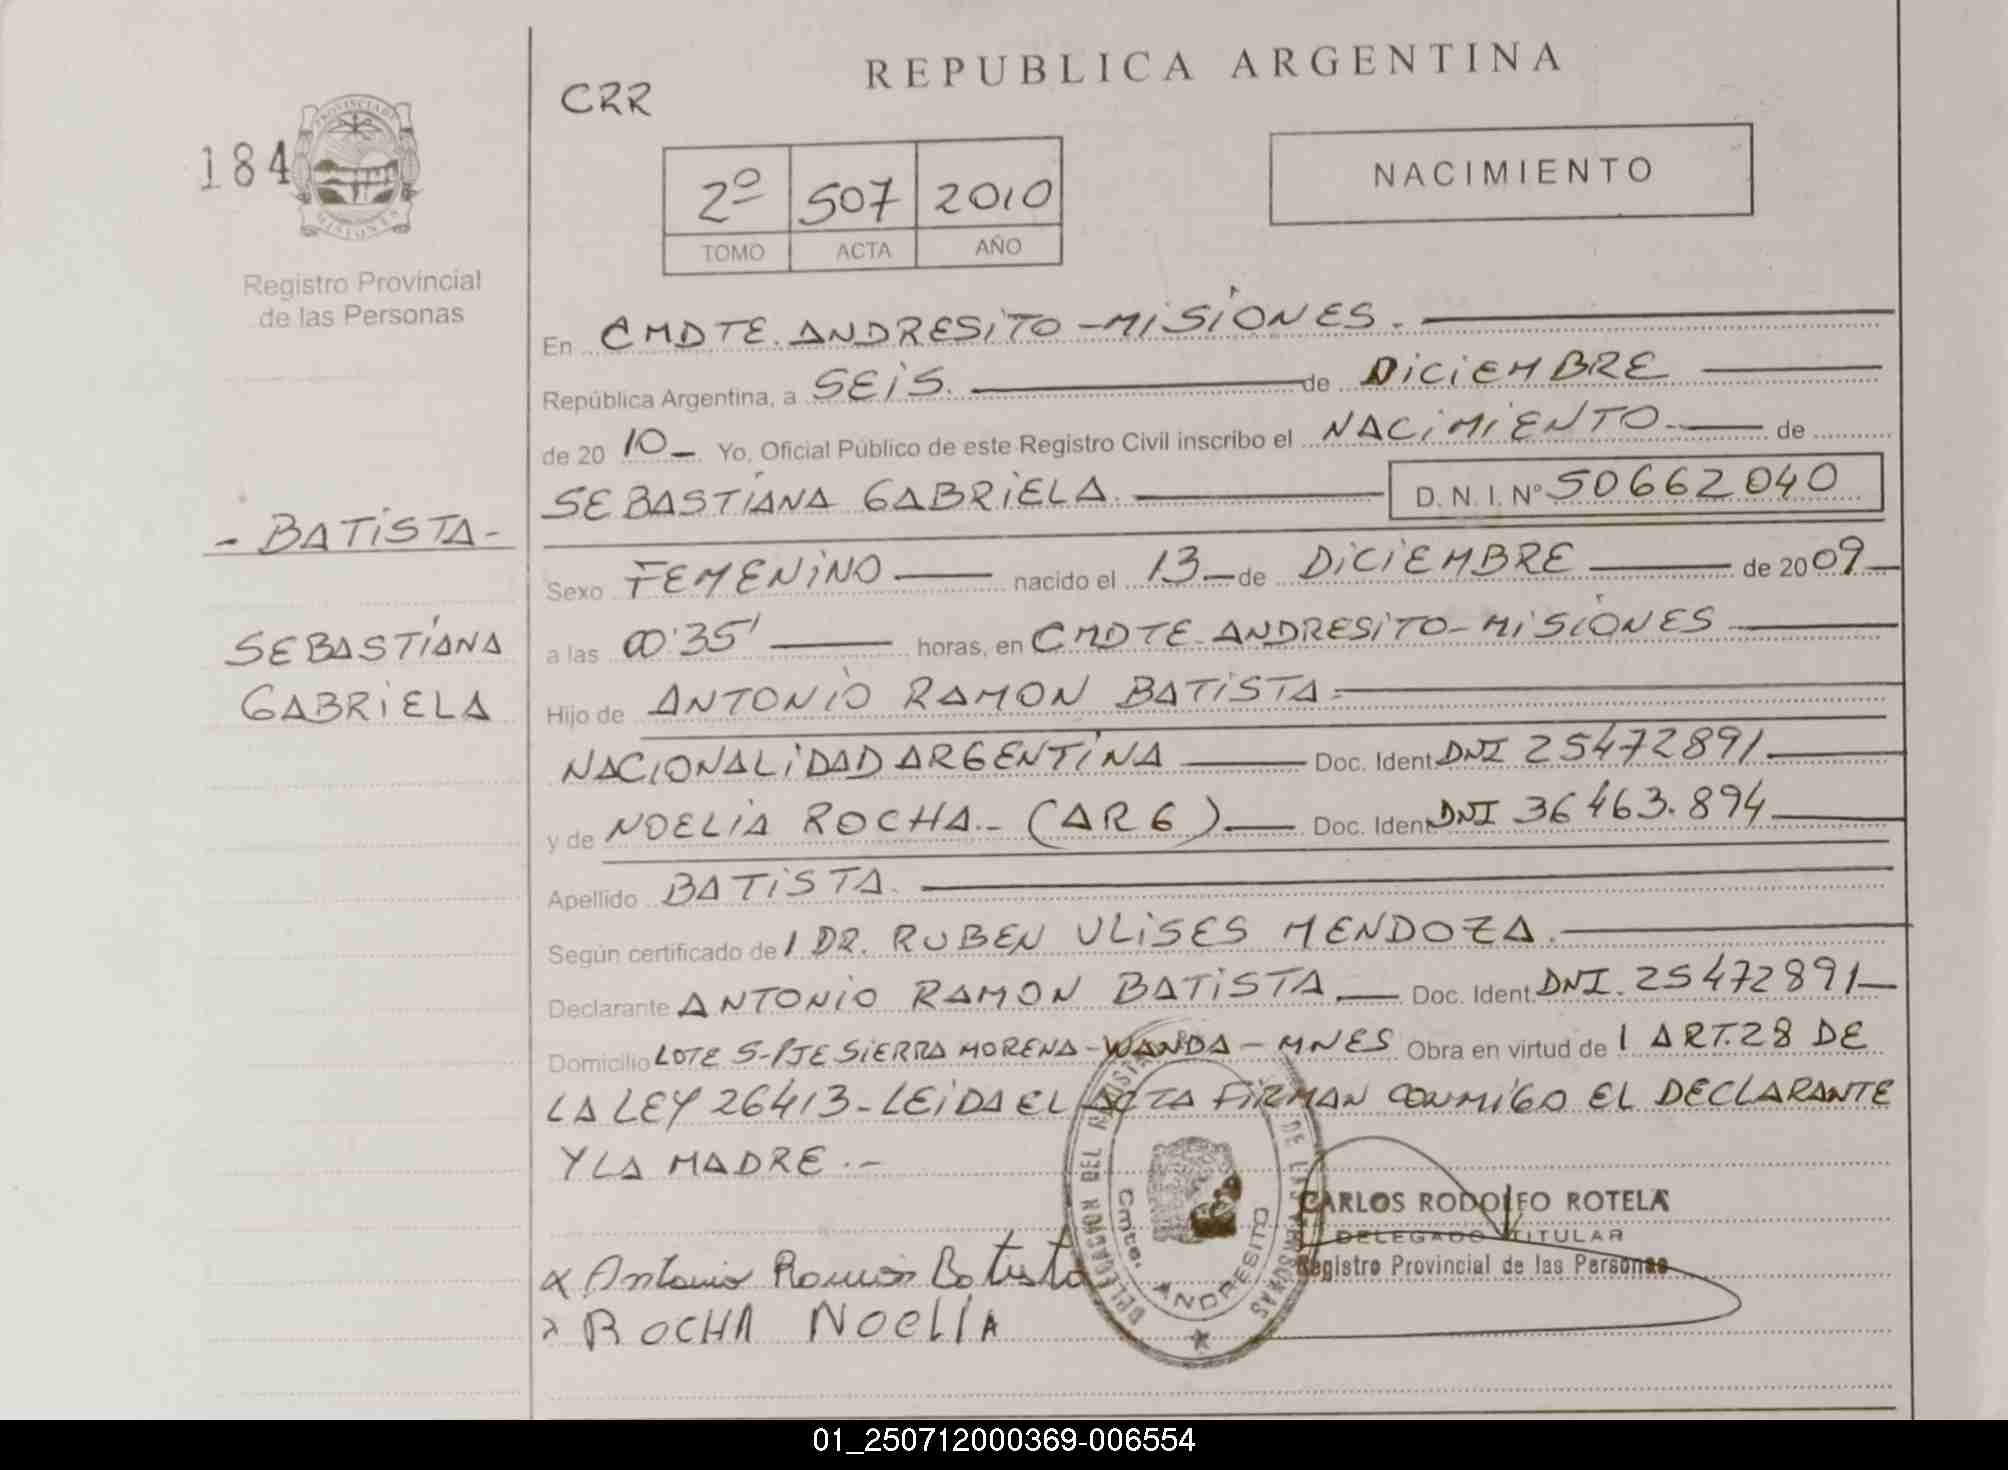 REPUBLICA ARGENTINA
CRR
184
PROVINCIA DE
MISIONES
2º 507 2010
TOMO ACTA AÑO
NACIMIENTO
Registro Provincial
de las Personas
En CMDTE. ANDRESITO - MISIONES.
República Argentina, a SEIS. de DICIEMBRE
de 20 10 Yo, Oficial Público de este Registro Civil inscribo el NACIMIENTO de
SEBASTIANA GABRIELA. D. N. I. Nº 50662040
- BATISTA -
SEBASTIANA
GABRIELA
Sexo FEMENINO nacido el 13 de DICIEMBRE de 2009
a las 00'35' horas, en CMDTE ANDRESITO - MISIONES
Hijo de ANTONIO RAMON BATISTA
NACIONALIDAD ARGENTINA Doc. Ident. DNI 25472891
y de NOELIA ROCHA.- (ARG) Doc. Ident. DNI 36463.894
Apellido BATISTA.
Según certificado de 1 DR. RUBEN ULISES MENDOZA.
Declarante ANTONIO RAMON BATISTA Doc. Ident. DNI. 25472891
Domicilio LOTE 5-PJE SIERRA MORENA - WANDA - MNES Obra en virtud de 1 ART.28 DE
LA LEY 26413 - LEIDA EL ACTA FIRMAN CONMIGO EL DECLARANTE
Y LA MADRE.-
Antonio Ramon Batista
ROCHA NOELIA
Cmte. ANDRESITO
CARLOS RODOLFO ROTELA
DELEGADO TITULAR
Registro Provincial de las Personas
01_250712000369-006554